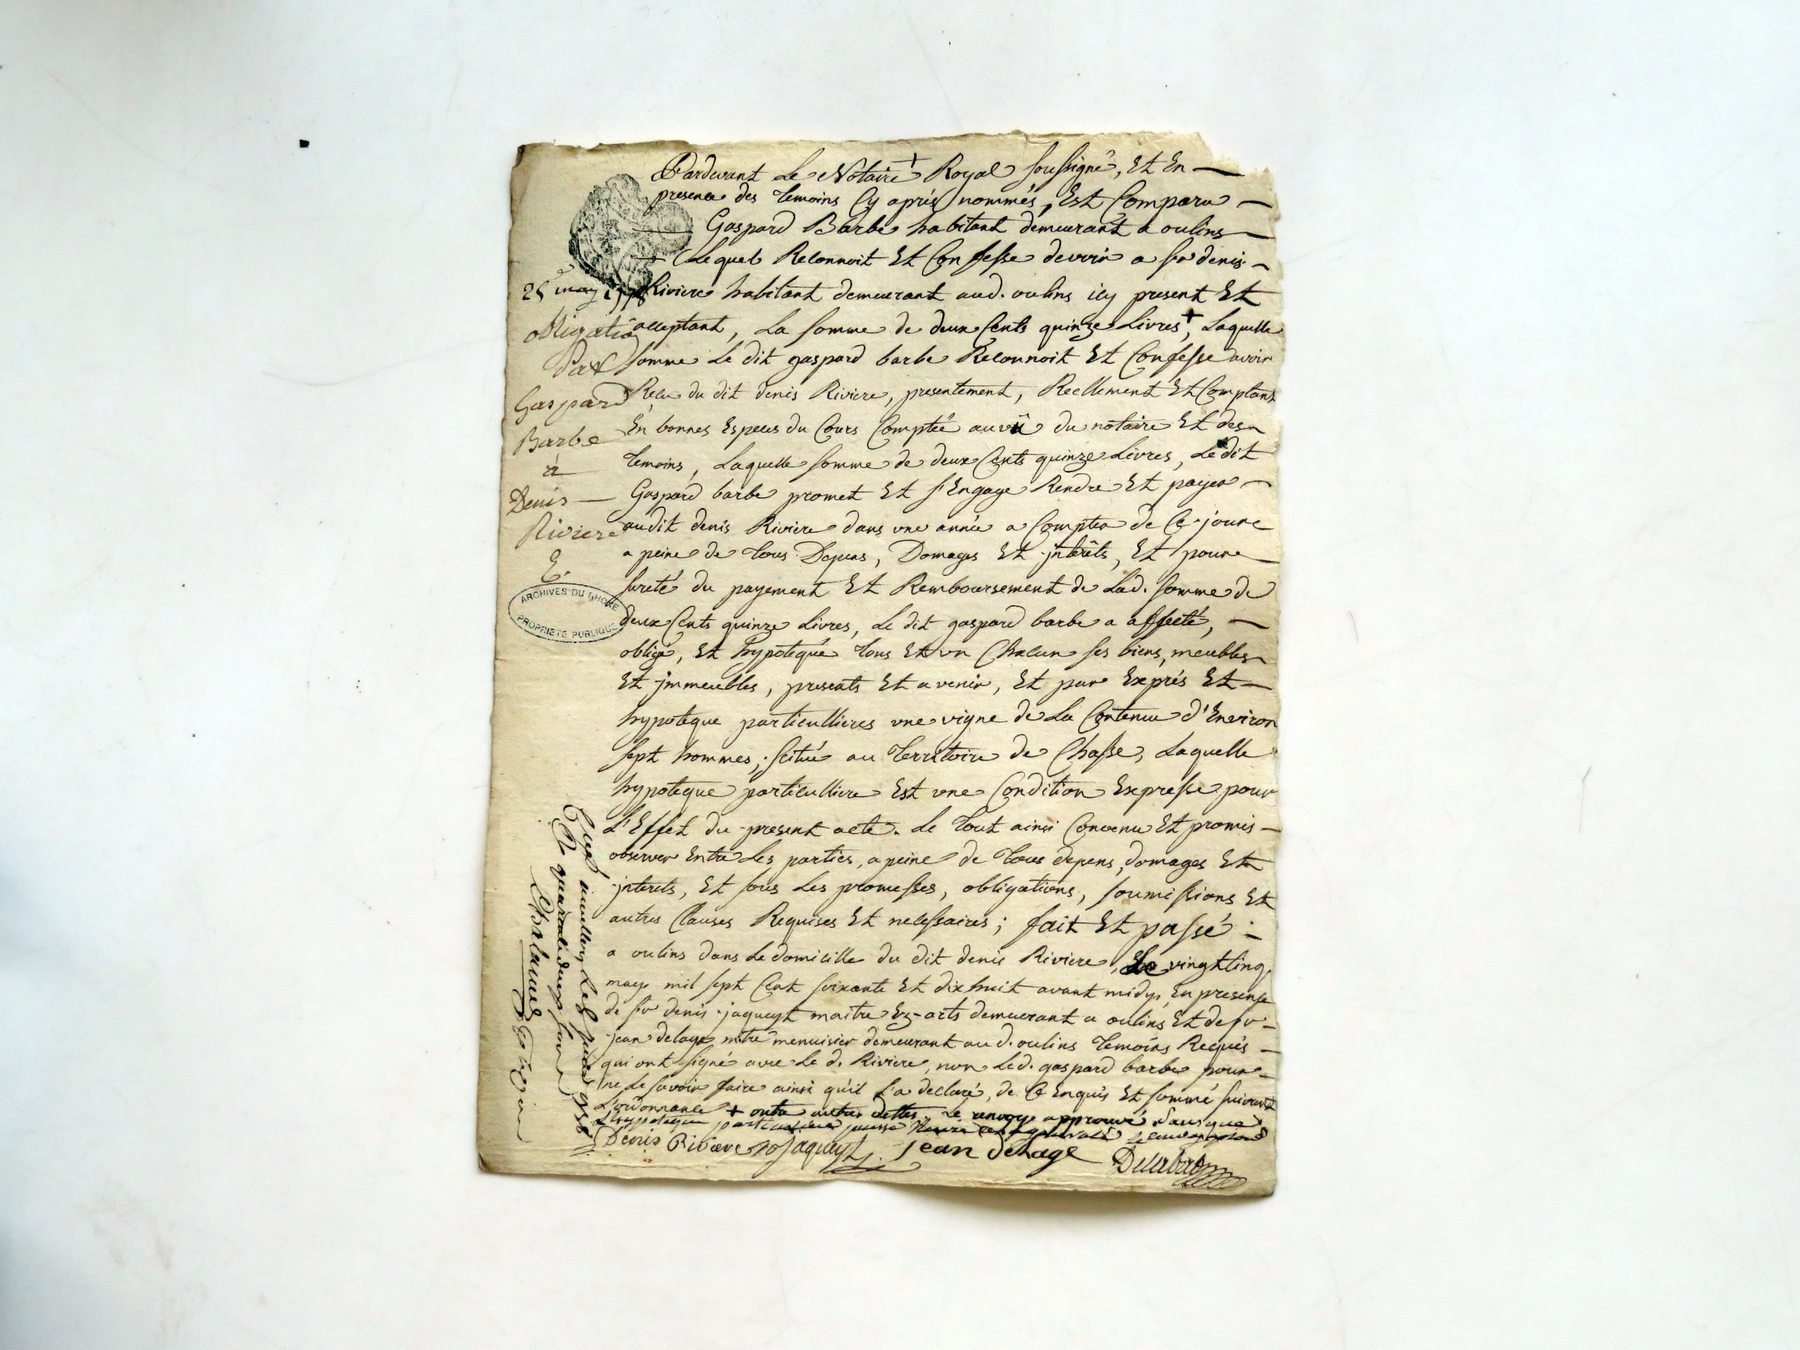 Pardevant Le Notaire + Royal soussigné, Et En
presence des temoins Cy aprés nommés, Est Comparu
Gaspard Barbe habitant demeurant a oulins
Lequel Reconnoit Et Confesse devoir a sr denis
Riviere habitant demeurant aud. oulins icy present Et
acceptant, La somme de deux Cents quinze Livres +, Laquelle
somme Le dit gaspard barbe Reconnoit Et Confesse avoir
Recu du dit denis Riviere, presentement, Reellement Et Comptant
En bonnes Especes du Cours Comptée au vû du notaire Et des
temoins, Laquelle somme de deux Cents quinze Livres, Ledit
Gaspard barbe promet Et s'Engage Rendre Et payer
audit denis Riviere dans une année a Compter de Ce joure
a peine de tous Depens, Domages Et jnterêts, Et pour
sureté du payement Et Remboursement de Lad. somme de
deux Cents quinze Livres, Le dit gaspard barbe a affecté,
obligé, Et hypotequé tous Et un Chacun ses biens, meubles
Et jmmeubles, presents Et a venir, Et par Exprés Et
hypoteque particullieres une vigne de La Contenue d'Environ
sept hommes, scituée au territoire de Chasse, Laquelle
hypoteque particulliere Est une Condition Expresse pour
L'Effet du present acte. Le tout ainsi Convenu Et promis
observer Entre Les parties, a peine de tous depens, domages Et
jnterets, Et sous Les promesses, obligations, soumissions Et
autres Clauses Requises Et necessaires; fait Et passé
a oulins dans Le domicille du dit denis Riviere, Le vingtcinq
may mil sept Cent soixante Et dixhuit avant midy, En presence
de sr denis jaqueyt maitre Ez-arts demeurant a oulins Et de sr
jean delage mtre menuisier demeurant aud. oulins temoins Requis
qui ont signé avec Le d. Riviere, non Led. gaspard barbe pour
ne Le savoir faire ainsi qu'il L'a declaré, de Ce Enquis Et sommé suivant
L'ordonnance + outre autres dettes. Le renvoy approuvé sans que
hypoteque particuliere puisse
Denis Riviere Jaqueyt jean delage
25 may 1778
obligation
Par
Gaspard
Barbe
à
Denis
Riviere
E.
ARCHIVES DU RHONE
PROPRIÉTÉ PUBLIQUE